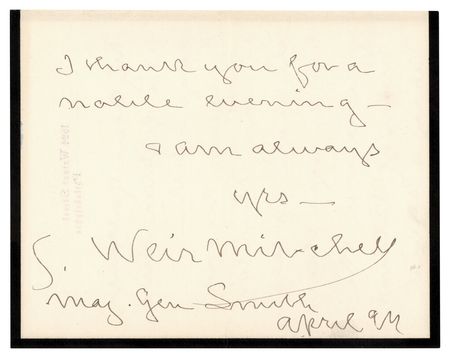 I thank you for a
noble evening —
I am always
yrs —
S. Weir Mitchell
Maj. Gen Smith
April 9th
1524 Walnut Street
Philadelphia